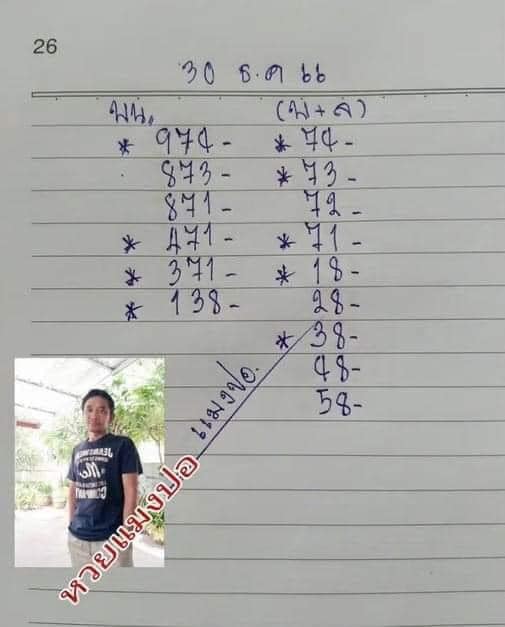 26
30 ธ.ค 66
บน. (บ+ล)
* 974- * 74-
873- * 73-
871- 72-
* 471- * 71-
* 371- * 18-
* 138- 28-
* 38-
48-
58-
แมงปอ.
หวยแมงปอ